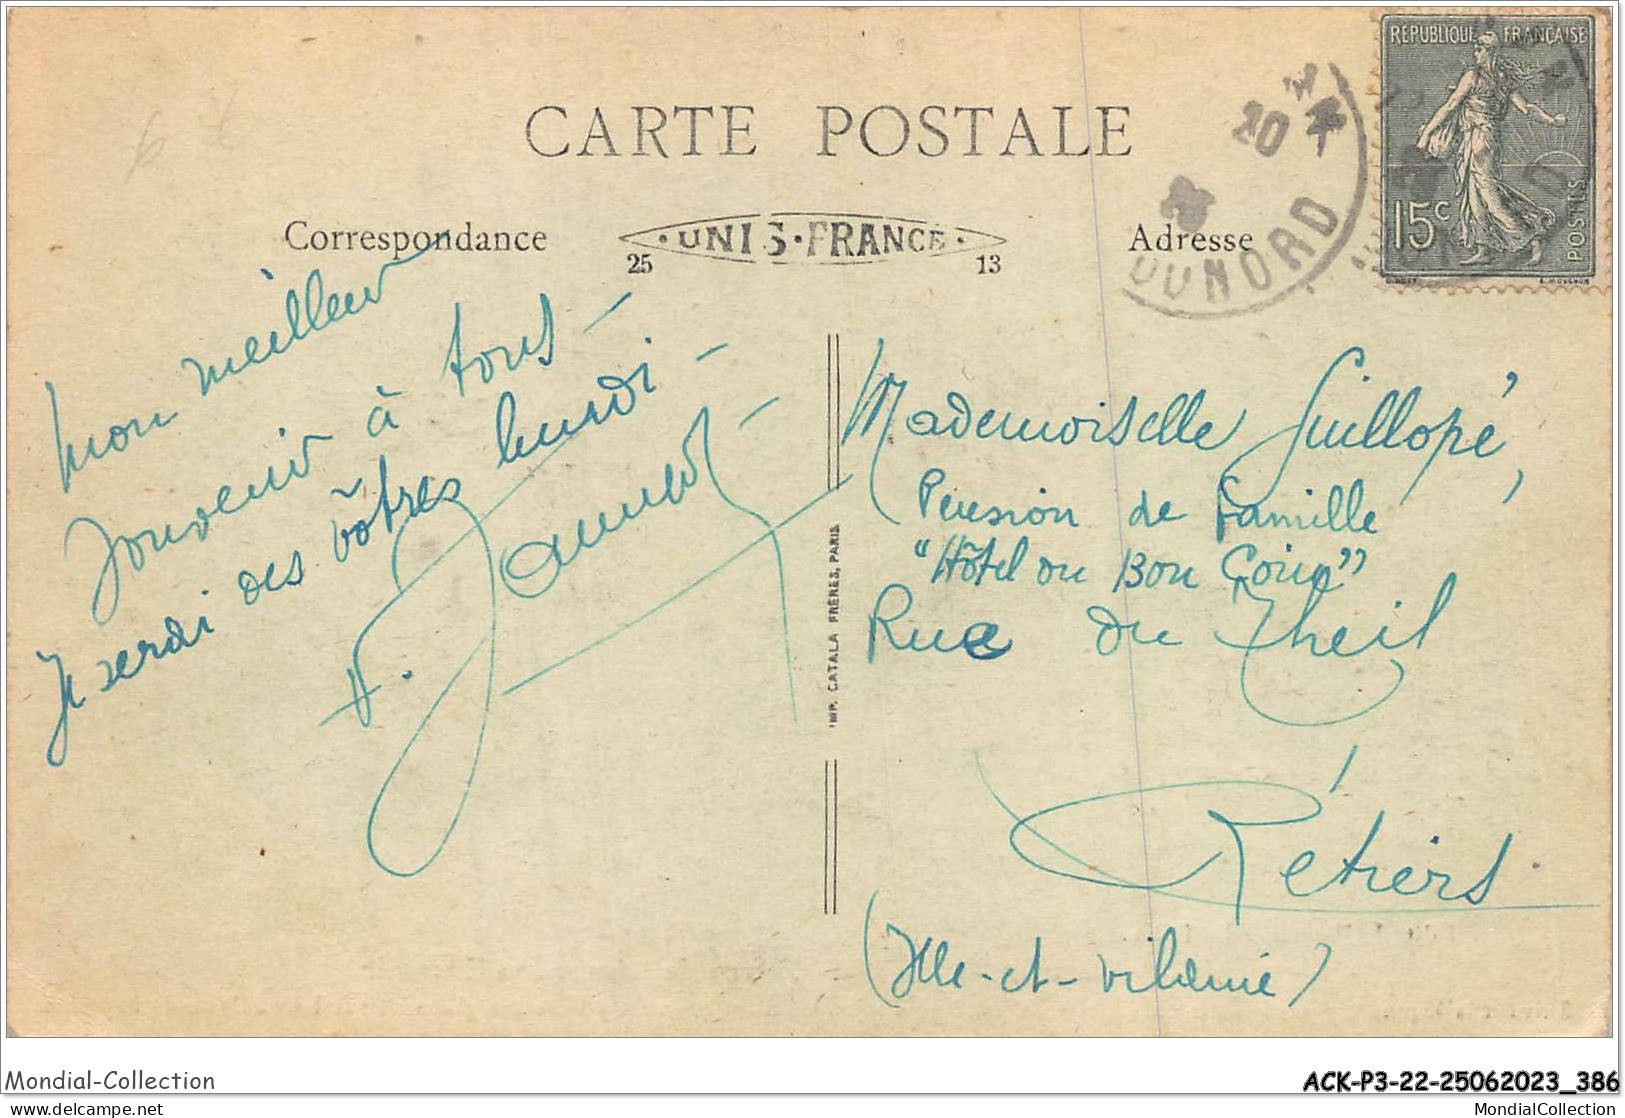 CARTE POSTALE
Correspondance
· UNIS · FRANCE ·
25
13
Adresse
RÉPUBLIQUE FRANÇAISE
15c
POSTES
DU NORD
20
mon meilleur
souvenir à tous –
Je serai des vôtres lundi –
Mademoiselle Guillopé,
Pension de famille
"Hôtel du Bon Coin"
Rue du Theil
Rétiers
(Ille-et-Vilaine)
IMP. CATALA FRÈRES, PARIS
Mondial-Collection
ACK-P3-22-25062023_386
Mondial-Collection.delcampe.net
MondialCollection